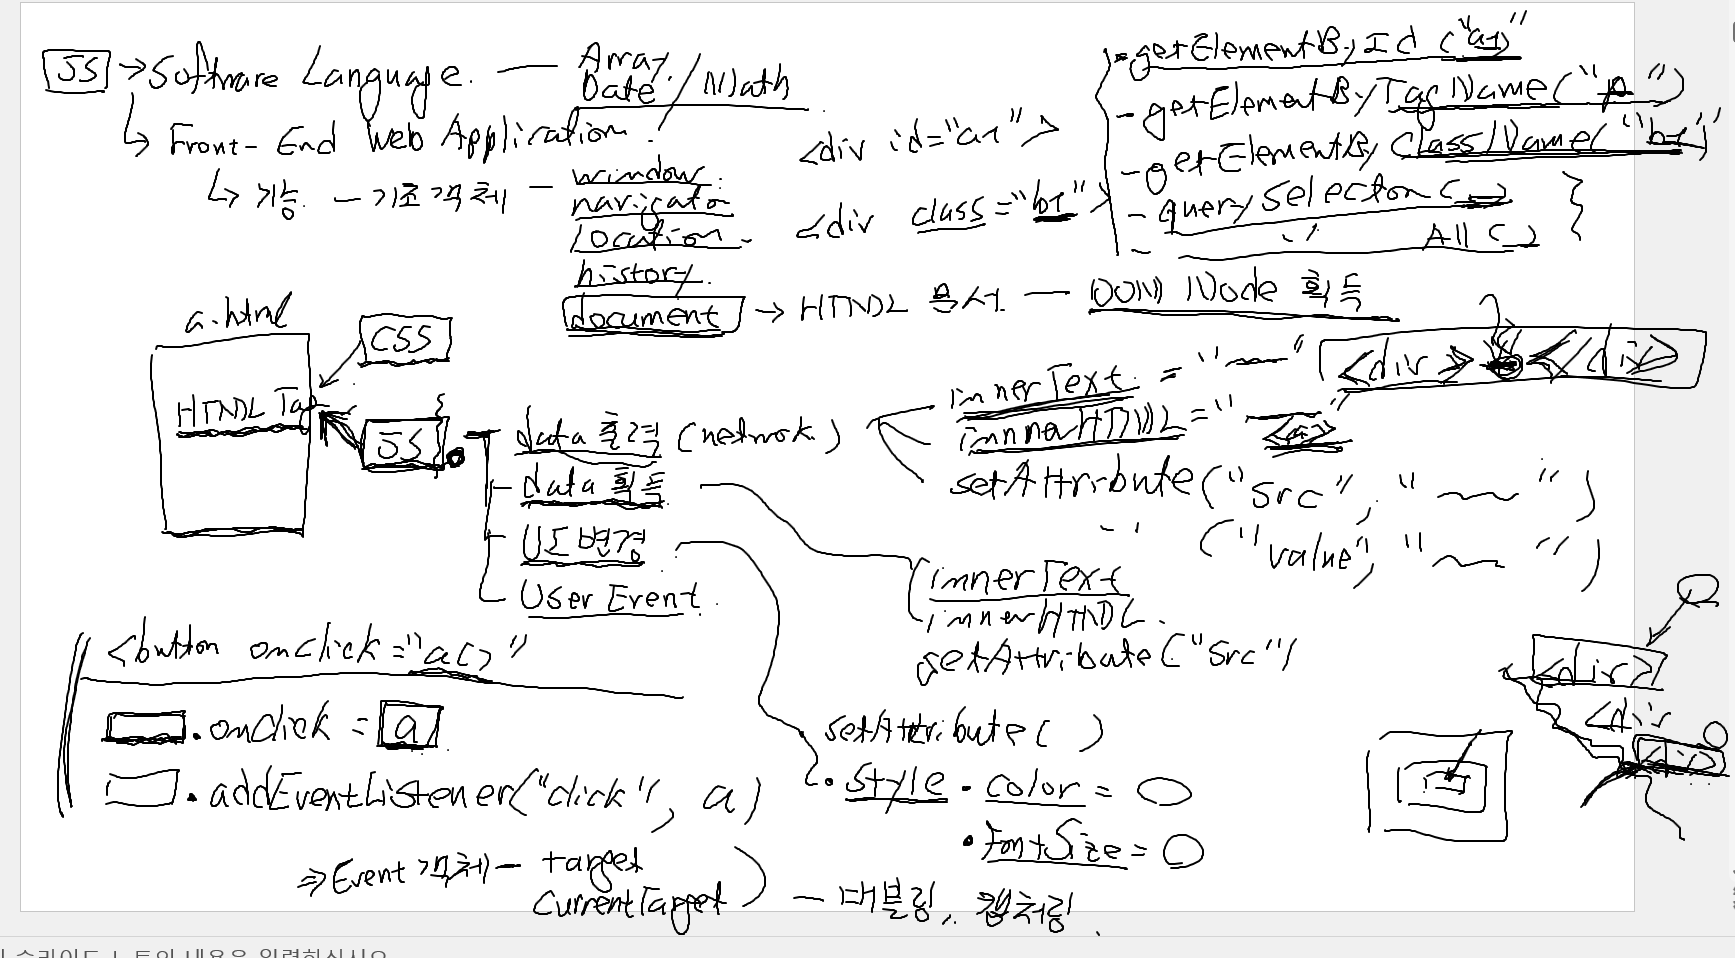 JS → Software Language. — Array, Date / Math
↳ Front-End Web Application.
↳ 기능 — 기초객체 — window.
navigator
location.
history.
document → HTML 문서 — DOM Node 획득
<div id="a1">
<div class="b1">
- getElementById("a1")
- getElementByTagName("p")
- getElementByClassName("b1")
- querySelector( )
- " All( )
a.html
HTML Tag
CSS
JS
data 출력 (netwrok)
data 획득
UI 변경
User Event
innerText = "
innnerHTML = " <a> "
<div> </div>
setAttribute("src", " ")
" ("value", " ")
innerText
innerHTML.
getAttribute("src")
<button onclick="a()"
.onclick = a
.addEventListener("click", a)
⇒ Event 객체 — target
currentTarget
— 버블링, 캡처링
setAttribute( )
.style.color =
.fontSize =
<div>
<div
< >
슬라이드 노트의 내용을 입력하십시오